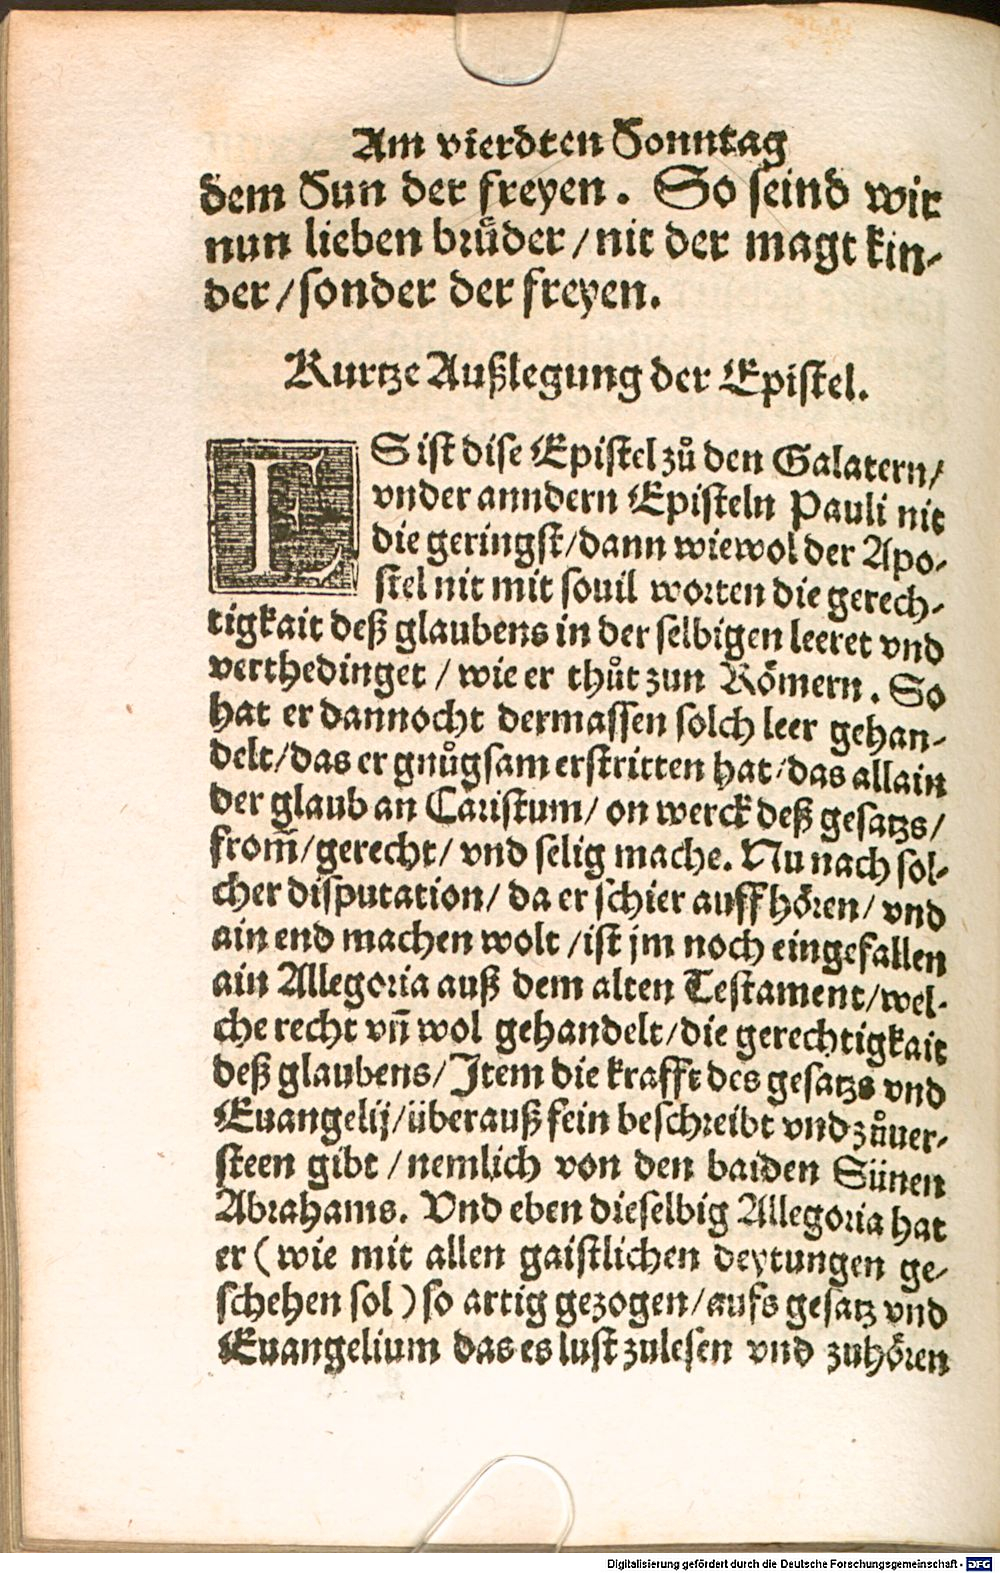 Am vierdten Sonntag
dem Sun der freyen. So seind wir
nun lieben brůder / nit der magt kin-
der / sonder der freyen.
Kurtze Außlegung der Epistel.
ES ist dise Epistel zů den Galatern /
vnder anndern Episteln Pauli nit
die geringst / dann wiewol der Apo-
stel nit mit souil worten die gerech-
tigkait deß glaubens in der selbigen leeret vnd
verthedinget / wie er thůt zun Römern. So
hat er dannocht dermassen solch leer gehan-
delt / das er gnůgsam erstritten hat / das allain
der glaub an Christum / on werck deß gesatzs /
from̄ / gerecht / vnd selig mache. Nu nach sol-
cher disputation / da er schier auff hören / vnd
ain end machen wolt / ist jm noch eingefallen
ain Allegoria auß dem alten Testament / wel-
che recht vn̄ wol gehandelt / die gerechtigkait
deß glaubens / Item die krafft des gesatzs vnd
Euangelij / überauß fein beschreibt vnd zůuer-
steen gibt / nemlich von den baiden Sünen
Abrahams. Vnd eben dieselbig Allegoria hat
er ( wie mit allen gaistlichen deytungen ge-
schehen sol ) so artig gezogen / aufs gesatz vnd
Euangelium das es lust zulesen vnd zuhören
Digitalisierung gefördert durch die Deutsche Forschungsgemeinschaft - DFG